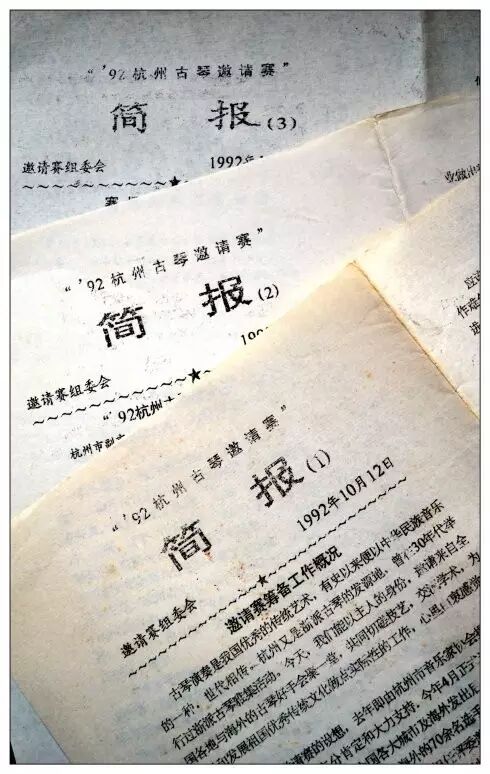 “'92杭州古琴邀请赛”
简 报(3)
邀请赛组委会 1992年
“'92杭州古琴邀请赛”
简 报(2)
邀请赛组委会
“'92杭州
杭州市副
“'92杭州古琴邀请赛”
简 报(1)
邀请赛组委会 1992年10月12日
邀请赛筹备工作概况
古琴演奏是我国优秀的传统艺术,有史以来便以中华民族音乐
的一种,世代相传。杭州又是浙派古琴的发源地,曾在30年代举
行过浙派古琴雅集活动。今天,我们能以主人的身份,邀请来自全
国各地与海外的古琴好手会聚一堂,共同切磋技艺,交流学术,为
和发展祖国优秀传统文化做点实际性的工作,心里
请赛的设想,去年即由杭州市音乐家协会
分肯定和大力支持。今年4月
国各大城市及海外发出
外的70余名